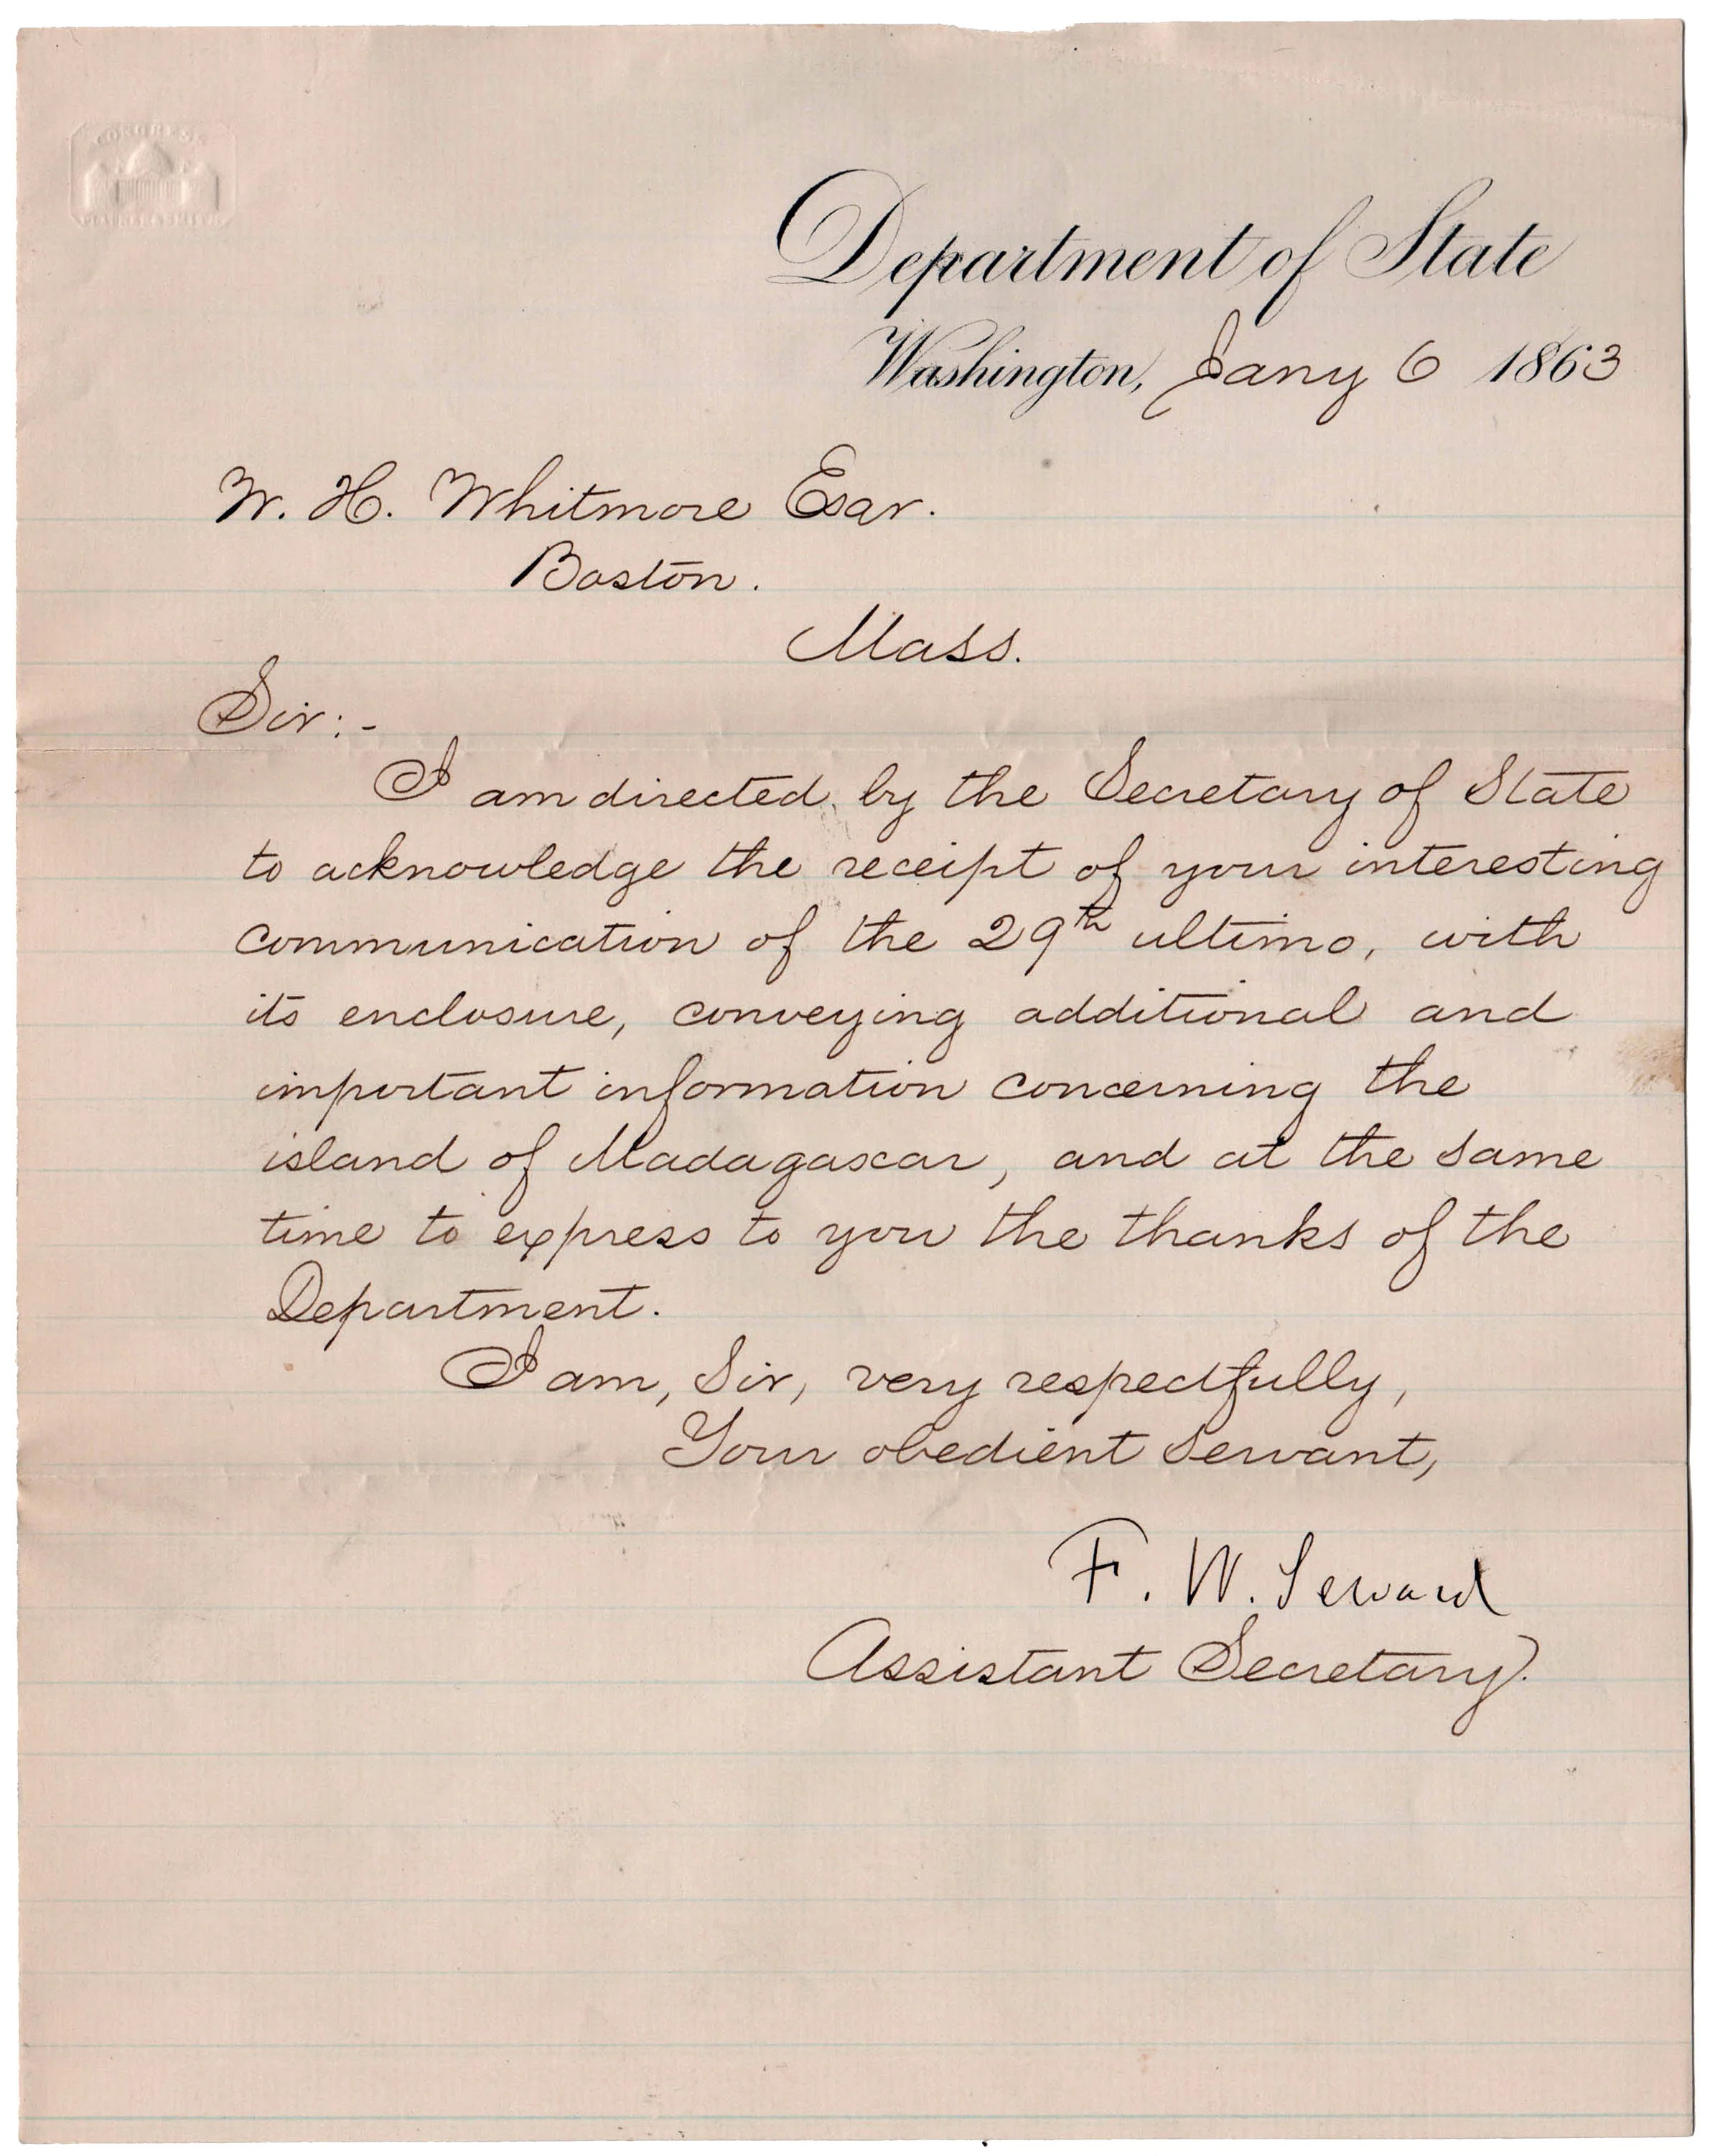 CONGRESS
Department of State
Washington, Jany 6 1863
W. H. Whitmore Esqr.
Boston.
Mass.
Sir:-
I am directed by the Secretary of State
to acknowledge the receipt of your interesting
communication of the 29th ultimo, with
its enclosure, conveying additional and
important information concerning the
island of Madagascar, and at the same
time to express to you the thanks of the
Department.
I am, Sir, very respectfully,
Your obedient servant,
F. W. Seward
Assistant Secretary.